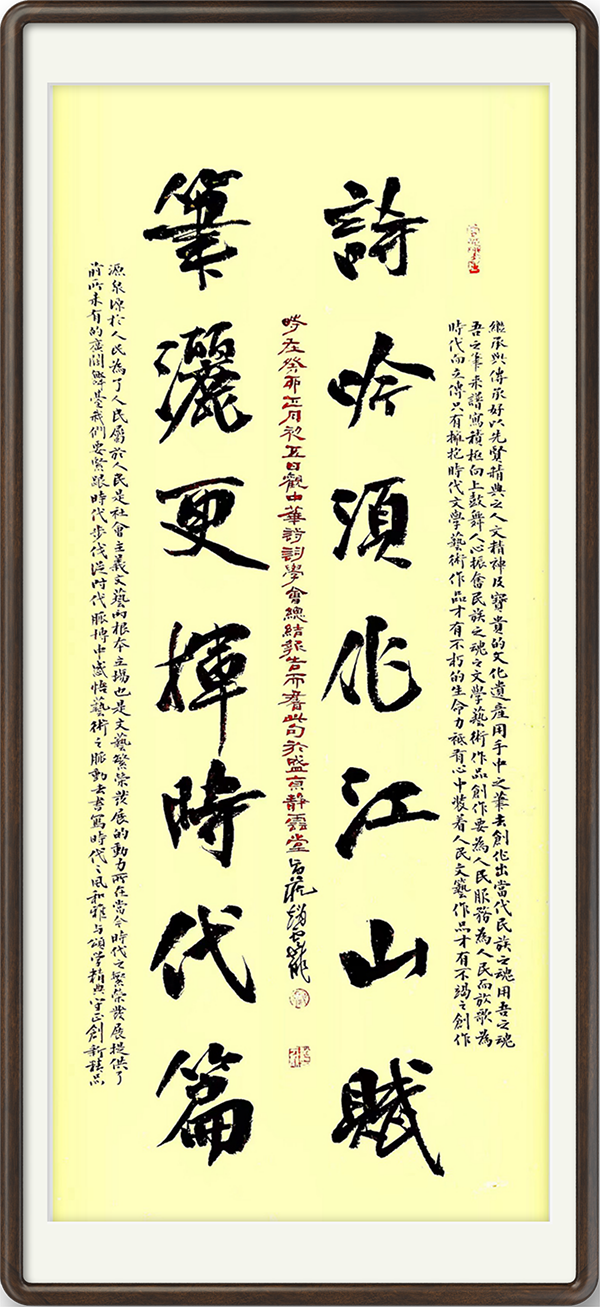 繼承與傳承好以先賢精典之人文精神及寶貴的文化遺產用手中之筆去創作出當代民族之魂用吾之魂
吾之筆來譜寫積極向上鼓舞人心振奮民族之魂之文學藝術作品創作要為人民服務為人民而放歌為
時代而立傳只有擁抱時代文學藝術作品才有不朽的生命力祗有心中裝着人民文藝作品才有不竭之創作
詩吟須作江山賦
時在癸卯正月初五日觀中華詩詞學會總結報告而書此句於盛京靜雲堂
筆灑更揮時代篇
源泉源於人民為了人民屬於人民是社會主義文藝的根本立場也是文藝繁榮發展的動力所在當今時代之繁榮發展提供了
前所未有的廣闊舞臺我們要緊跟時代步伐從時代脈搏中感悟藝術之脈動去書寫時代之風和雅与頌學精典守正創新精品